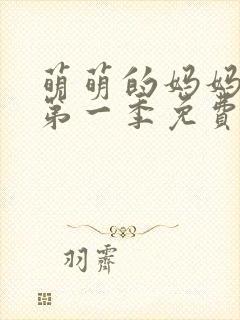 萌萌的妈妈
第一季免費
羽霽